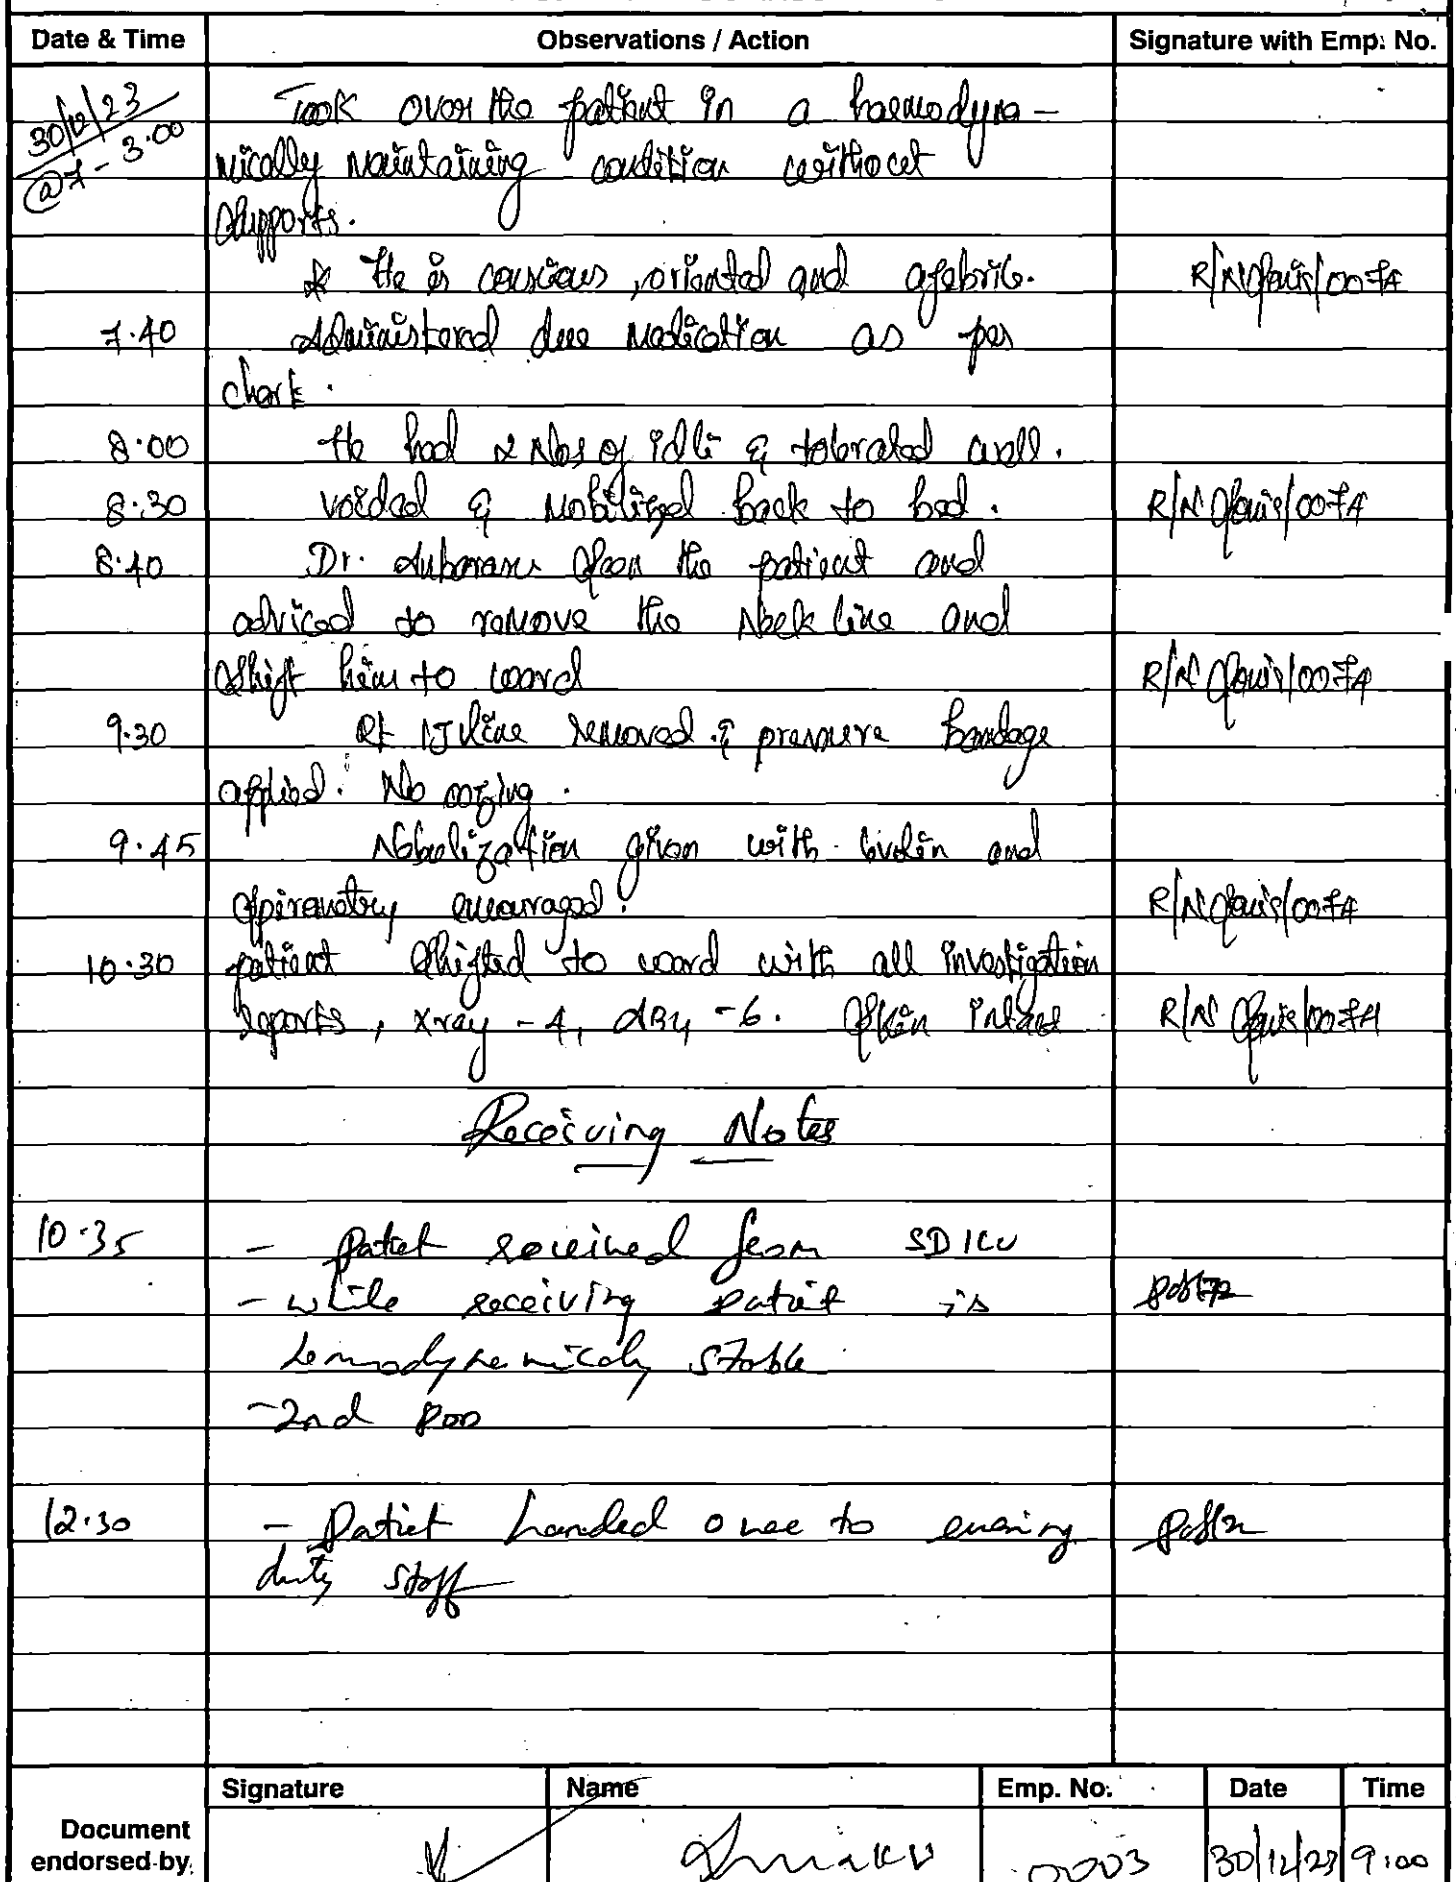 Date & Time Observations / Action Signature with Emp. No.
30/12/23 Took over the patient in a haemodyna-
@7-3.00 mically maintaining condition without
supports.
* He is conscious, oriented and afebrile. R/N 0074
7.40 Administered due medication as per
chart.
8.00 He had 2 Nos of idli & tolerated well.
8.30 voided & mobilized back to bed. R/N 0074
8.40 Dr. seen the patient and
adviced to remove the Neck line and
shift him to ward R/N 0074
9.30 Rt IJ line removed & pressure bandage
applied. No oozing.
9.45 Nebulization given with and
encouraged. R/N 0074
10.30 patient shifted to ward with all investigation
reports, xray -4, -6. Skin intact R/N 0074
Receiving Notes
10.35 - patiet received from SDICU
- while receiving patiet is
stable
- 2nd POD
12.30 - Patiet handed to
duty staff
Signature Name Emp. No. Date Time
Document
endorsed by. 0003 30/12/23 9:00